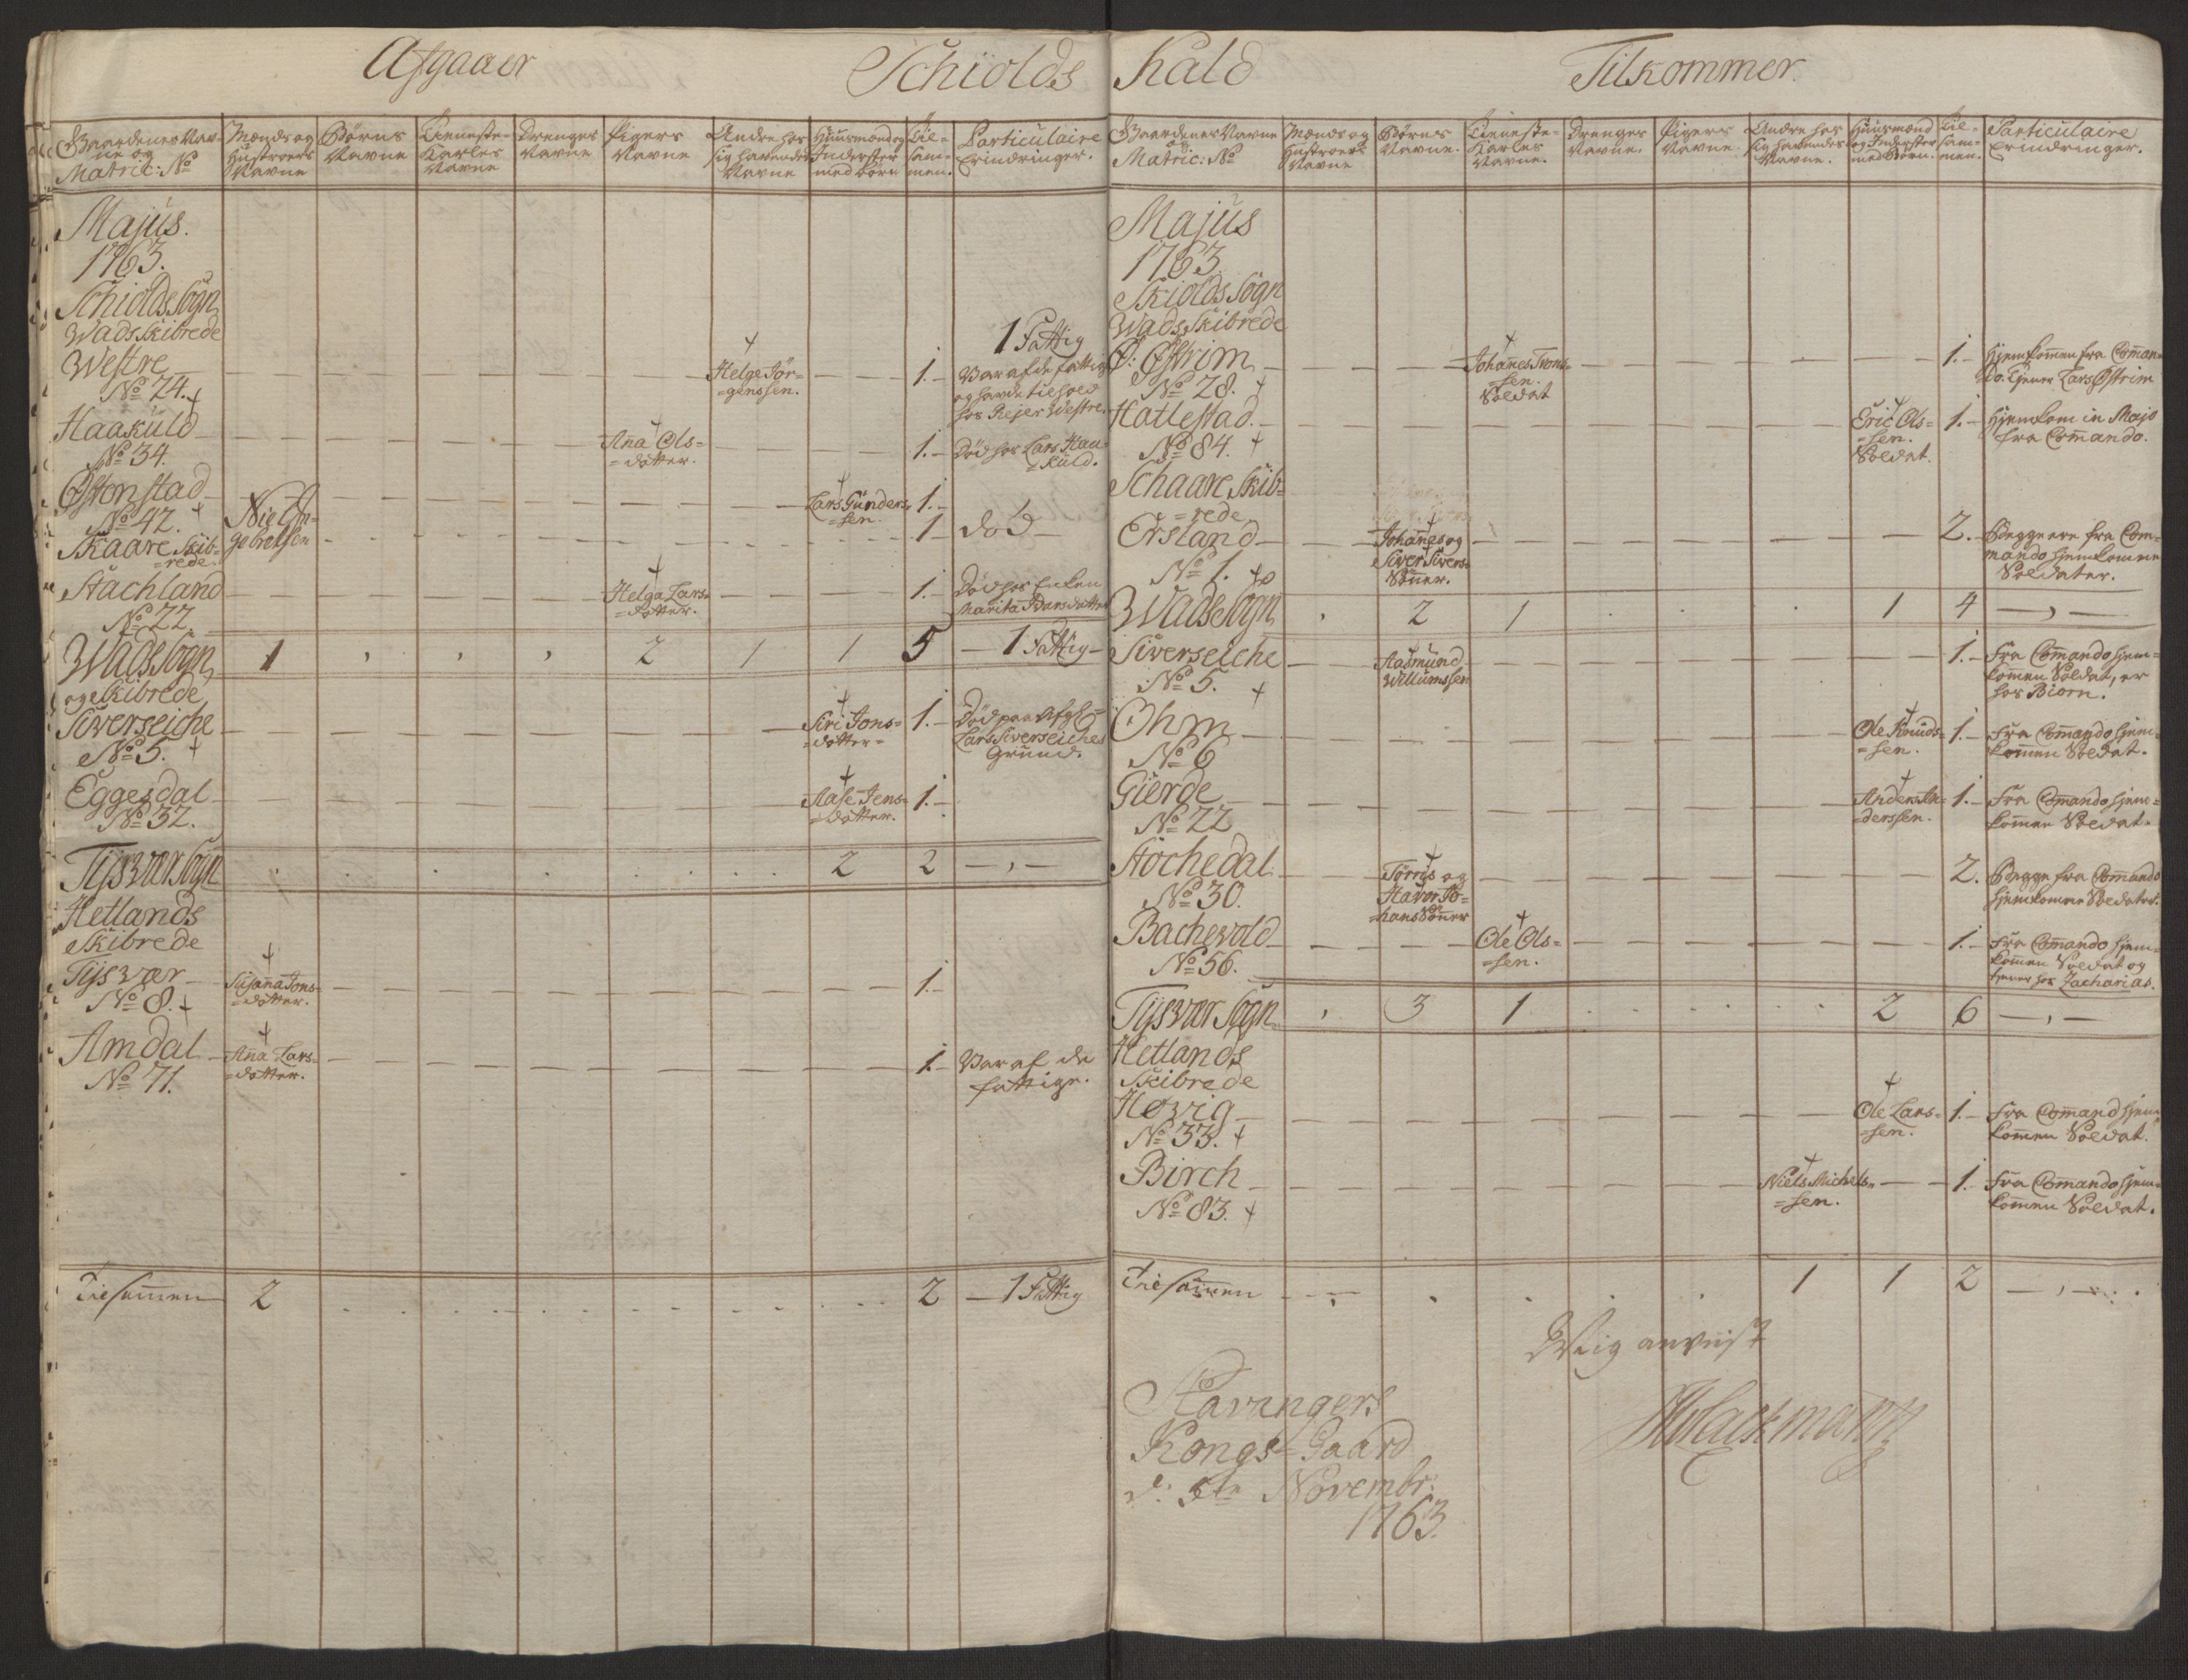 Afgaaer Schiolds Kald Tilkommer.
Gaardenes Nav-
ne og
Matric: No
Mænds og
Hustroers
Navne
Børns
Navne
Tieneste-
Karles
Navne
Drenges
Navne
Pigers
Navne
Andre hos
sig havendes
Navne
Huusmænd og
Inderster
med børn
Til-
sam-
men.
Particulaire
Erindringer.
Majus.
1763.
Schiolds Sogn
Wads Skibrede
1 Fattig
Westre
No 24.
Helge Jør-
=gensen.
1.
Var af de fattige
og havde tilhold
hos Rejer Westre.
Haakuld
No 34.
Ana Ols=
=dotter.
1.
Død hos Lars Haa=
=kuld.
Østonstad
No 42.
Lars Gunder=
=sen.
1.
Niels In-
gebretsen
1 død
Skaare Skib=
=rede.
Stachland
No 22.
Helga Lars=
=dotter.
1.
Død hos Enken
Marita Barsdatter
1 2 1 1 5 1 Fattig
Wads Sogn
og Skibrede
Siverseiche
No 5.
Siri Jons=
=dotter=
1.
Død paa Afg:
Lars Siverseiches
Grund.
Eggesdal
No 32.
Aase Jens=
=dotter.
1.
2 2
Tysvær Sogn
Hetlands
Skibrede
Tysvær
No 8.
Susana Jons=
=dotter.
1.
Amdal
No 71.
Ana Lars=
=dotter.
1.
Var af de
fattige.
Tilsamen 2 2 1 Fattig
Gaardenes Navne
og
Matric: No
Mænds og
Hustroers
Navne
Børnes
Navne.
Tieneste-
Karles
Navne.
Drenges
Navne.
Pigers
Navne
Andre hos
sig havendes
Navne.
Huusmænd
og Inderster
med Børn.
Til-
sam-
men.
Particulaire
Erindringer.
Majus
1763
Skiolds Sogn
Wads Skibrede
Ø: Østrim
No 28.
Johanes Trons=
=sen.
Soldat
1.
Hjemkomen fra Coman=
do. Tjener Lars Østrim
Hatlestad
No 84.
Eric Ols=
=sen.
Soldat.
1.
Hjemkom in Majo
fra Comando.
Schaare Skib=
=rede
Ersland
No 1.
Johanes og
Siver Sivers
Sönner.
2.
Begge ere fra Com=
mando hjemkomne
Soldater.
2 1 1 4
Wads Sogn
Siverseiche
No 5.
Rasmund
Willumssen
1.
Fra Comando hjem=
komen Soldat, er
hos Biorn.
Ohm
No 6
Ole Knuds=
=sen.
1.
Fra Comando hjem=
komen Soldat.
Gierde
No 22
Anders An=
=derssen.
1.
Fra Comando hjem=
komen Soldat.
Stochedal
No 30.
Tørris og
Havor Jo=
=hans Sönner
2.
Begge fra Comando
hjemkomne Soldater.
Bachevold
No 56.
Ole Ols=
=sen.
1.
Fra Comando hjem=
komen Soldat og
tjener hos Zacharias.
3 1 2 6
Tysvær Sogn
Hetlands
Skibrede
Høvig
No 33.
Ole Lars=
=sen.
1.
Fra Comand hjem
komen Soldat.
Birch
No 83.
Niels Michels=
=sen.
1.
Fra Comando hjem=
komen Soldat.
Tilsamen 1 1 2
Mig anviist
Stavangers
Kongs-Gaard
d: 5te Novembr:
1763.